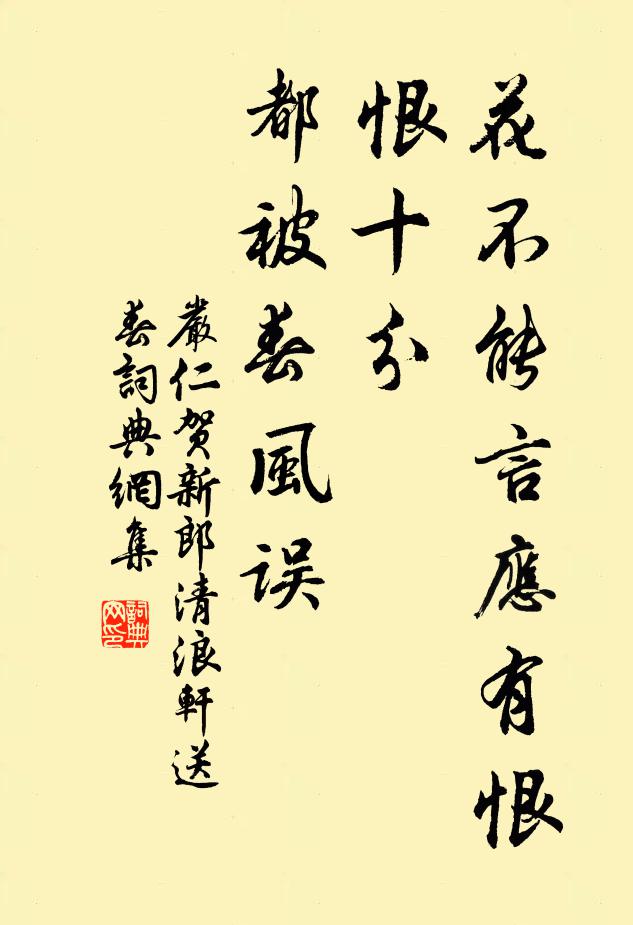 花不能言應有恨
恨十分
都被春風误
嚴仁贺新郎清浪軒送
春詞典網集
詞典
网印